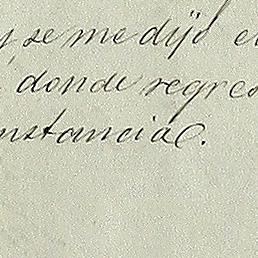 y se me dijo e
donde regres
nstancia.